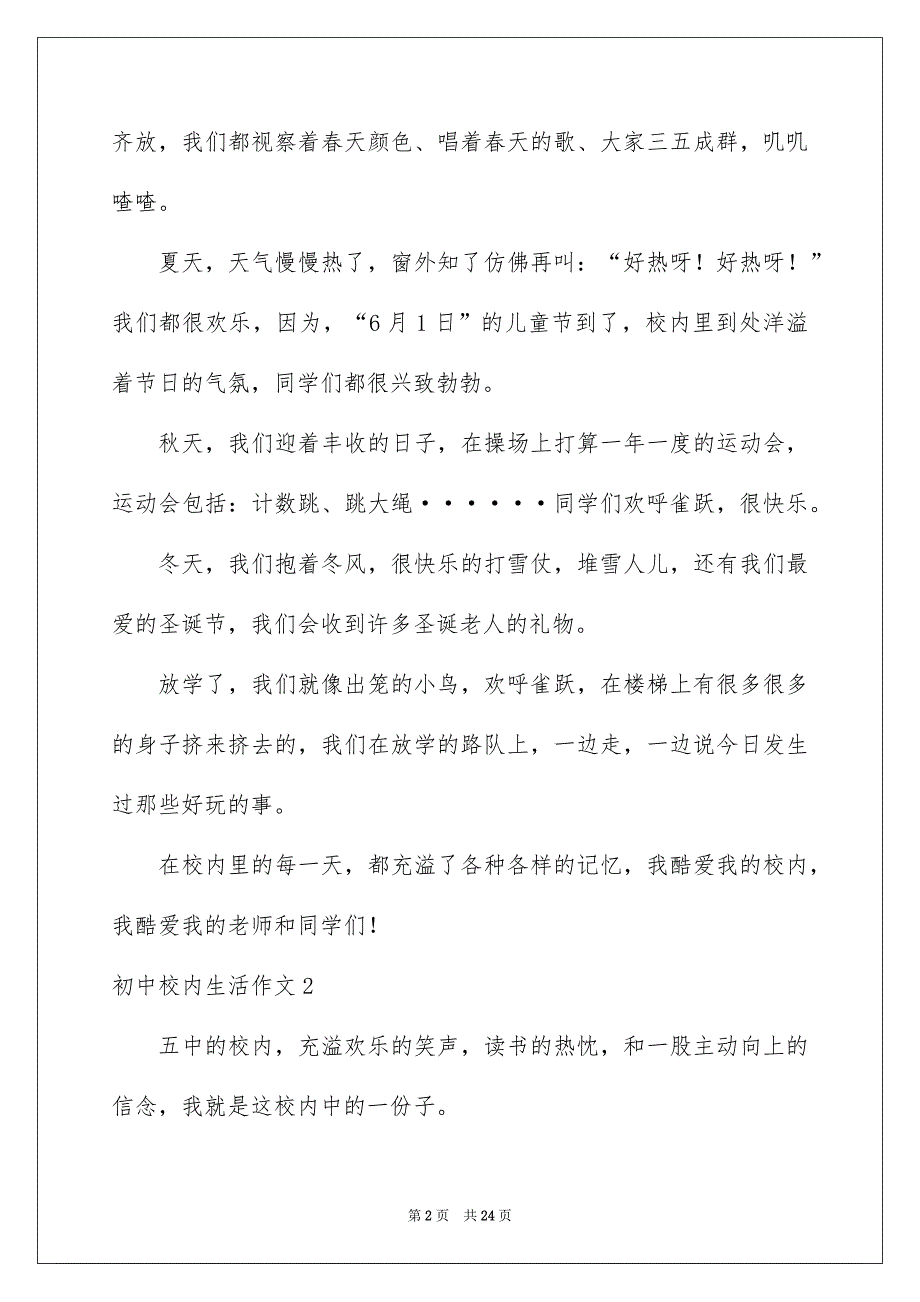 齐放，我们都视察着春天颜色、唱着春天的歌、大家三五成群，叽叽
喳喳。
夏天，天气慢慢热了，窗外知了仿佛再叫：“好热呀！好热呀！”
我们都很欢乐，因为，“6 月 1 日”的儿童节到了，校内里到处洋溢
着节日的气氛，同学们都很兴致勃勃。
秋天，我们迎着丰收的日子，在操场上打算一年一度的运动会，
运动会包括：计数跳、跳大绳······同学们欢呼雀跃，很快乐。
冬天，我们抱着冬风，很快乐的打雪仗，堆雪人儿，还有我们最
爱的圣诞节，我们会收到许多圣诞老人的礼物。
放学了，我们就像出笼的小鸟，欢呼雀跃，在楼梯上有很多很多
的身子挤来挤去的，我们在放学的路队上，一边走，一边说今日发生
过那些好玩的事。
在校内里的每一天，都充溢了各种各样的记忆，我酷爱我的校内，
我酷爱我的老师和同学们！
初中校内生活作文 2
五中的校内，充溢欢乐的笑声，读书的热忱，和一股主动向上的
信念，我就是这校内中的一份子。
第 2 页 共 24 页